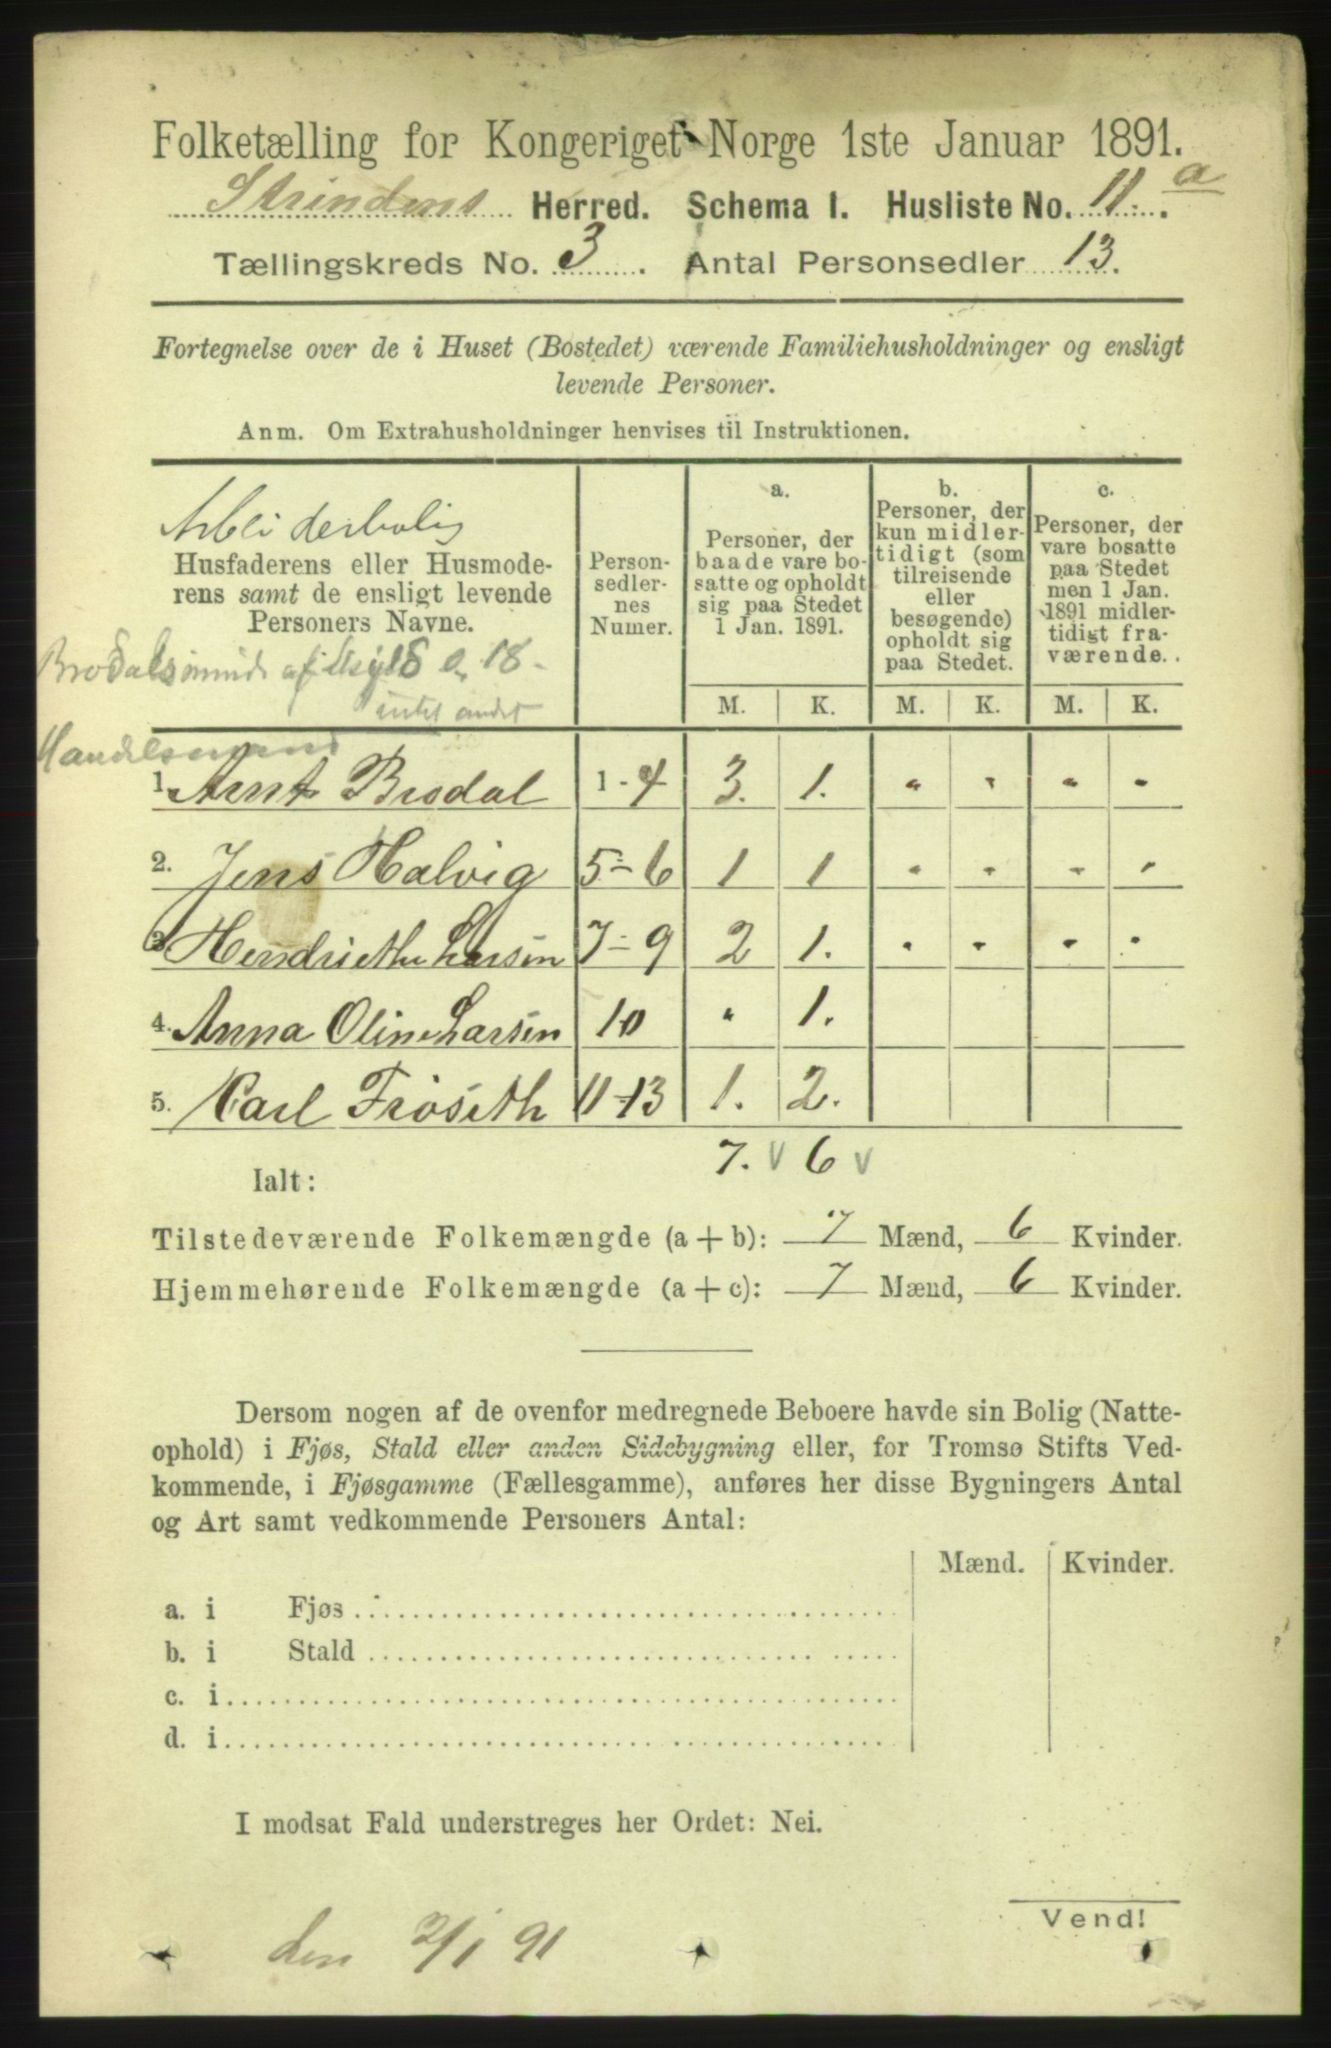 Folketælling for Kongeriget Norge 1ste Januar 1891.
Strindens Herred. Schema I. Husliste No. 11. a
Tællingskreds No. 3. Antal Personsedler 13.
Fortegnelse over de i Huset (Bostedet) værende Familiehusholdninger og ensligt
levende Personer.
Anm. Om Extrahusholdninger henvises til Instruktionen.
Arbeiderbolig
Husfaderens eller Husmode-
rens samt de ensligt levende
Personers Navne.
af Skyld 0, 18 -
intet andet
Person-
sedler-
nes
Numer.
a.
Personer, der
baade vare bo-
satte og opholdt
sig paa Stedet
1 Jan. 1891.
b.
Personer, der
kun midler-
tidigt (som
tilreisende
eller
besøgende)
opholdt sig
paa Stedet.
c.
Personer, der
vare bosatte
paa Stedet
men 1 Jan.
1891 midler-
tidigt fra-
værende.
M. K. M. K. M. K.
Handelsmand
1. Arnt Brodal 1-4 3. 1. " " " "
2. Jens Halvig 5-6 1 1 " " " "
3. Hendriethe Larsen 7-9 2 1. " " " "
4. Anna Oline Larsen 10 " 1.
5. Carl Frøseth 11-13 1. 2.
7. v 6 v
Ialt:
Tilstedeværende Folkemængde (a + b): 7 Mænd, 6 Kvinder.
Hjemmehørende Folkemængde (a + c): 7 Mænd, 6 Kvinder.
Dersom nogen af de ovenfor medregnede Beboere havde sin Bolig (Natte-
ophold) i Fjøs, Stald eller anden Sidebygning eller, for Tromsø Stifts Ved-
kommende, i Fjøsgamme (Fællesgamme), anføres her disse Bygningers Antal
og Art samt vedkommende Personers Antal:
Mænd. Kvinder.
a. i Fjøs
b. i Stald
c. i
d. i
I modsat Fald understreges her Ordet: Nei.
Vend!
den 2/1 91